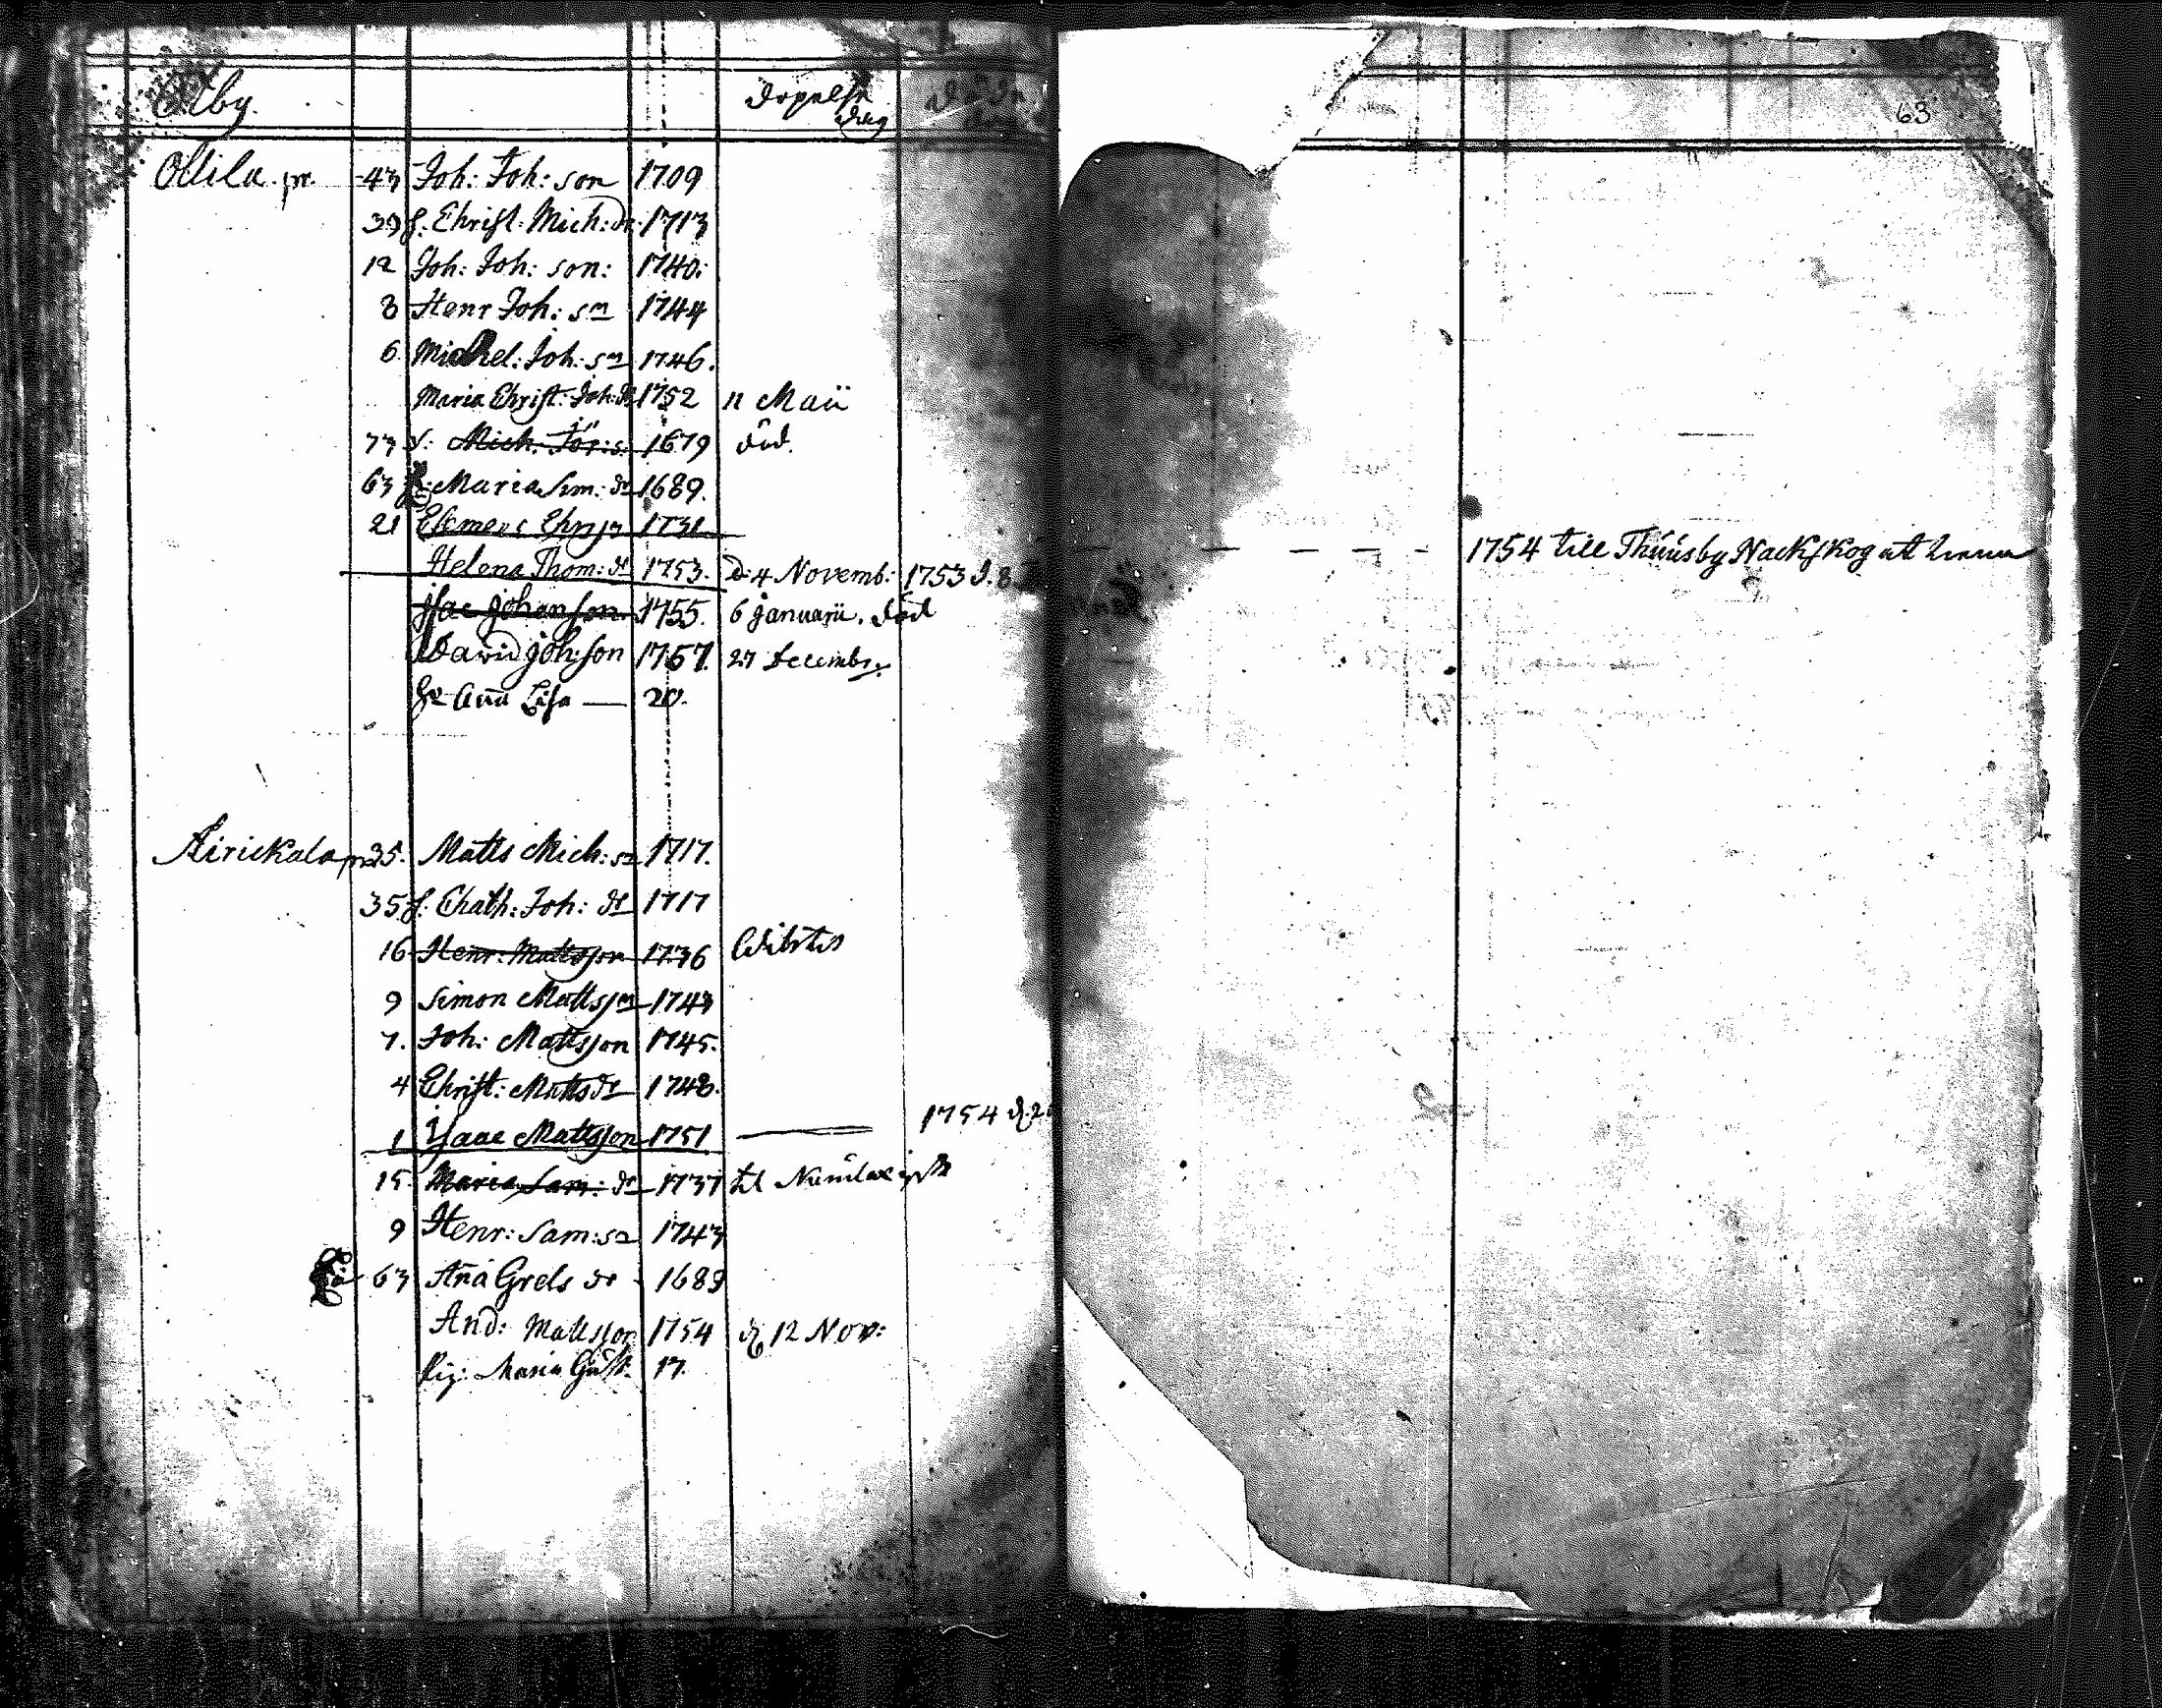 Alby. Döpelse dag Döde
63
Ollila. pr. 43 Joh: Joh: son 1709
39 h. Christ: Mich: dr 1713
12 Joh: Joh: son: 1740
8 Henr Joh: sn 1744
6 Michel: Joh: sn 1746.
Maria Christ: Joh: dr 1752 11 Maii
73 s: Mich: Jör: s: 1679 död.
63 Maria Sim: dr 1689.
21 Clemens Chrs sn 1731
1754 till Thuusby Nackskog att
Helena Thom: dr 1753. d: 4 Novemb: 1753 d. 8
Isac Johanson 1755. 6 Januarii. död
David Joh: son 1757. 27 Decembr.
Ana Lisa — 20.
Airickala pr 35. Matts Mich: sn 1717.
35 h. Chath: Joh: dr 1717
16 Henr: Mattsson 1736
9 Simon Mattssn 1743
7. Joh: Mattsson 1745.
4 Christ: Matts dr 1748.
1 Isaac Mattsson 1751 — 1754 d. 2
15 Maria Sam: dr 1737 til
9 Henr: Sam: sn 1743
63 Ana Grels dr 1689
And: Mattsson 1754 d 12 Nov:
Pig: Maria Gust. 17.